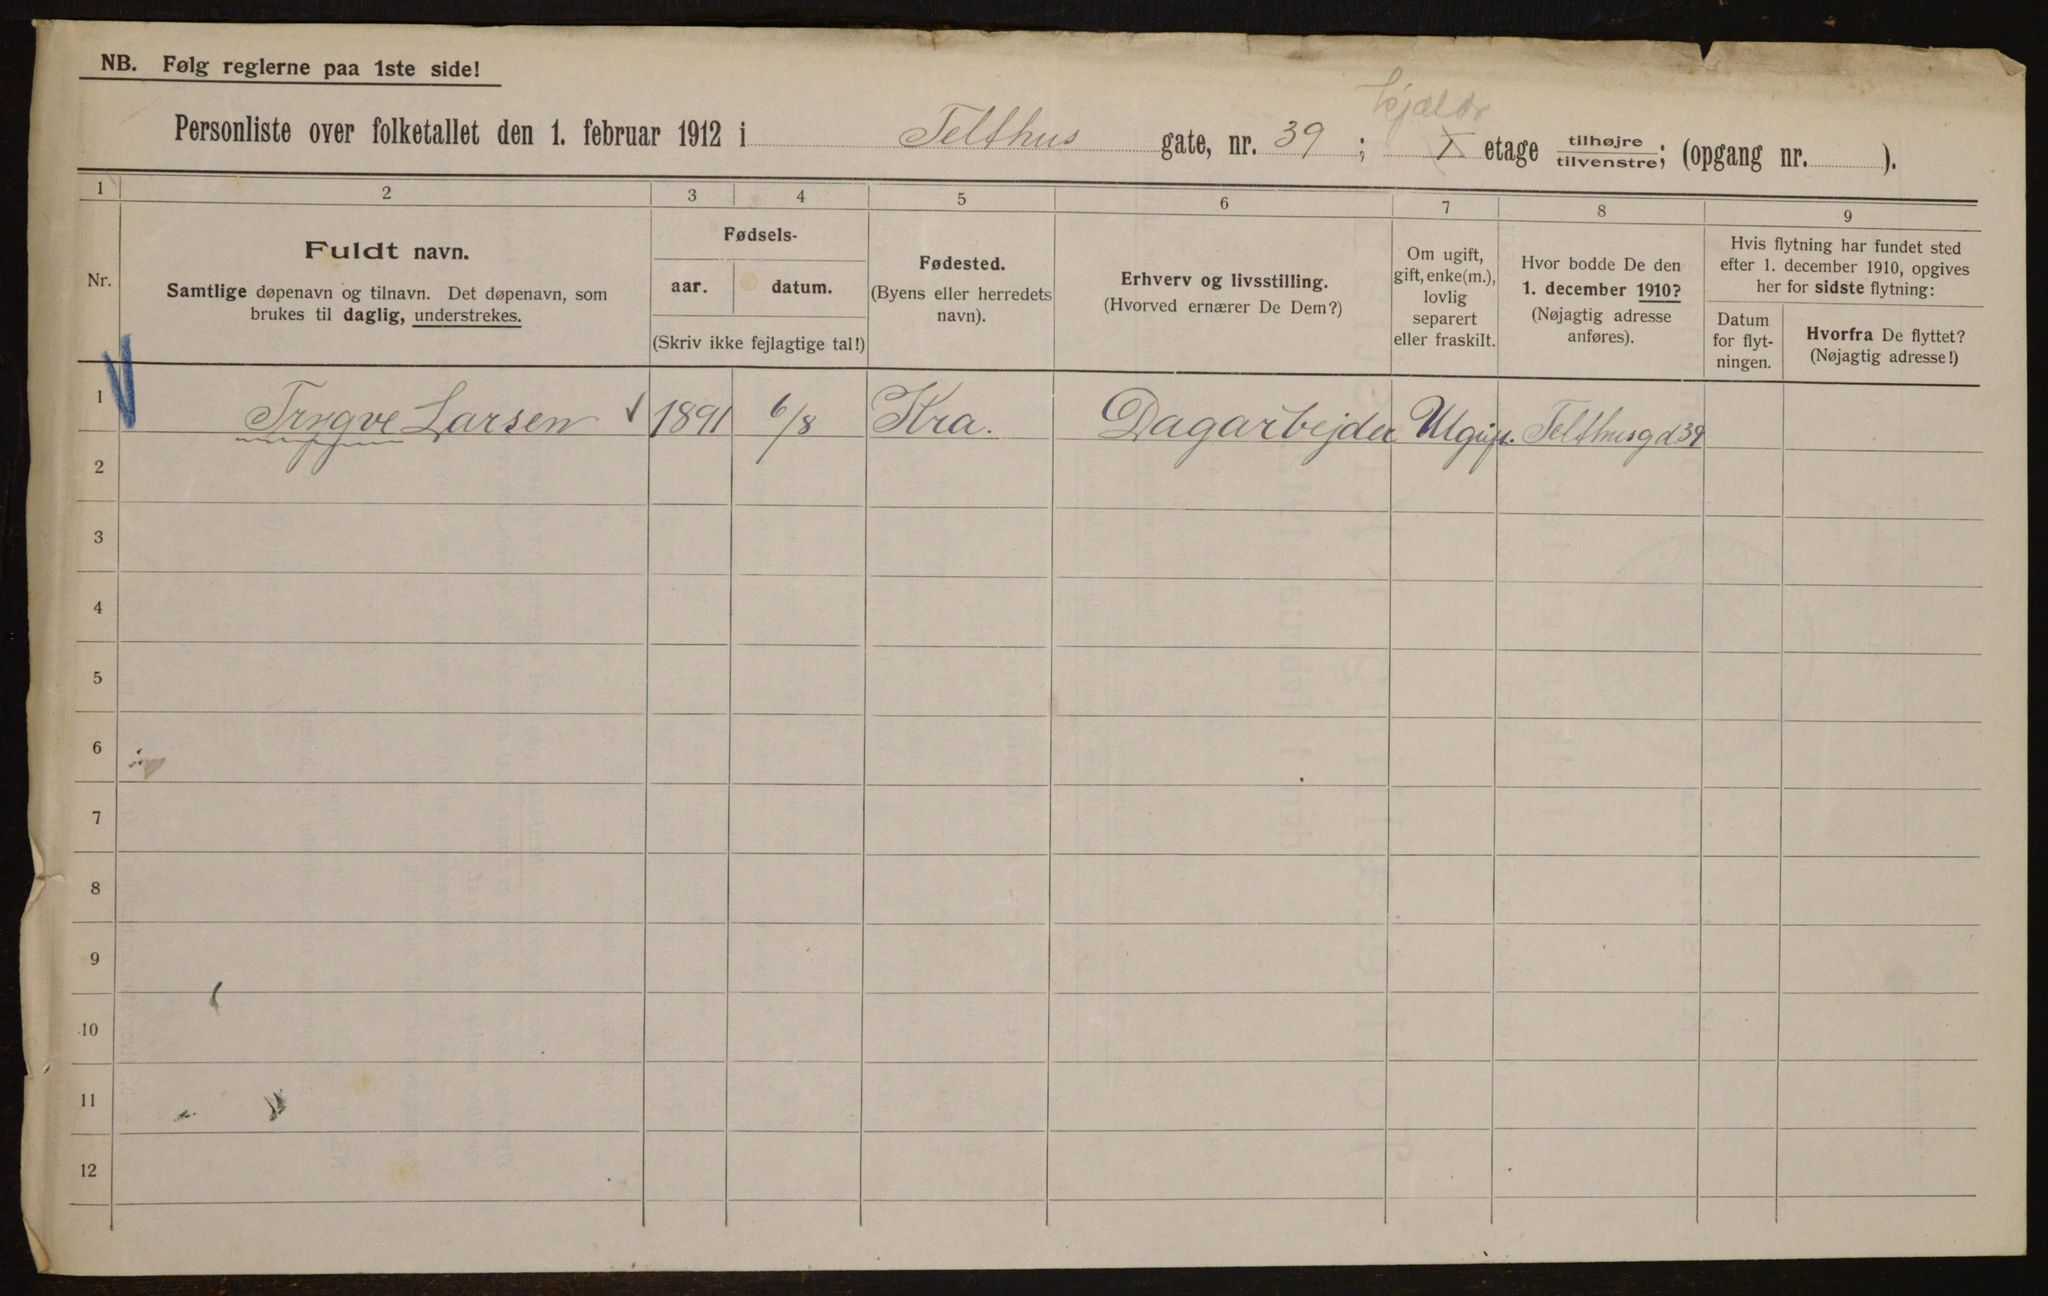 NB. Følg reglerne paa 1ste side!
Kjælder
Personliste over folketallet den 1. februar 1912 i Telthus gate, nr. 39 ; I etage tilhøjre/tilvenstre; (opgang nr. ).
1 2 3 4 5 6 7 8 9
Nr.
Fuldt navn.
Samtlige døpenavn og tilnavn. Det døpenavn, som
brukes til daglig, understrekes.
Fødsels-
aar. datum.
(Skriv ikke fejlagtige tal!)
Fødested.
(Byens eller herredets
navn).
Erhverv og livsstilling.
(Hvorved ernærer De Dem?)
Om ugift,
gift, enke(m.),
lovlig
separert
eller fraskilt.
Hvor bodde De den
1. december 1910?
(Nøjagtig adresse
anføres).
Hvis flytning har fundet sted
efter 1. december 1910, opgives
her for sidste flytning:
Datum
for flyt-
ningen.
Hvorfra De flyttet?
(Nøjagtig adresse!)
1 Trygve Larsen 1891 6/8 Kra. Dagarbejder Ugift. Telthusgd 39
2
3
4
5
6
7
8
9
10
11
12